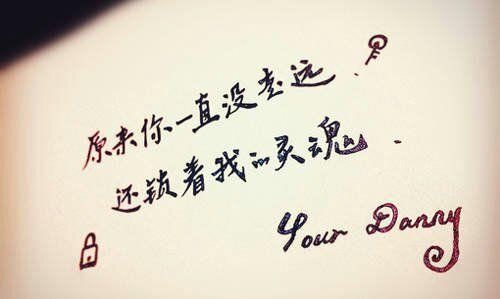 原来你一直没走远.
还锁着我的灵魂.
Your Danny